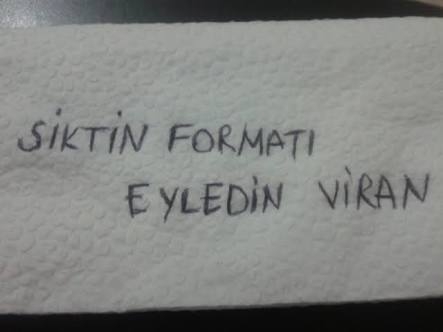 SİKTİN FORMATI
EYLEDİN VİRAN